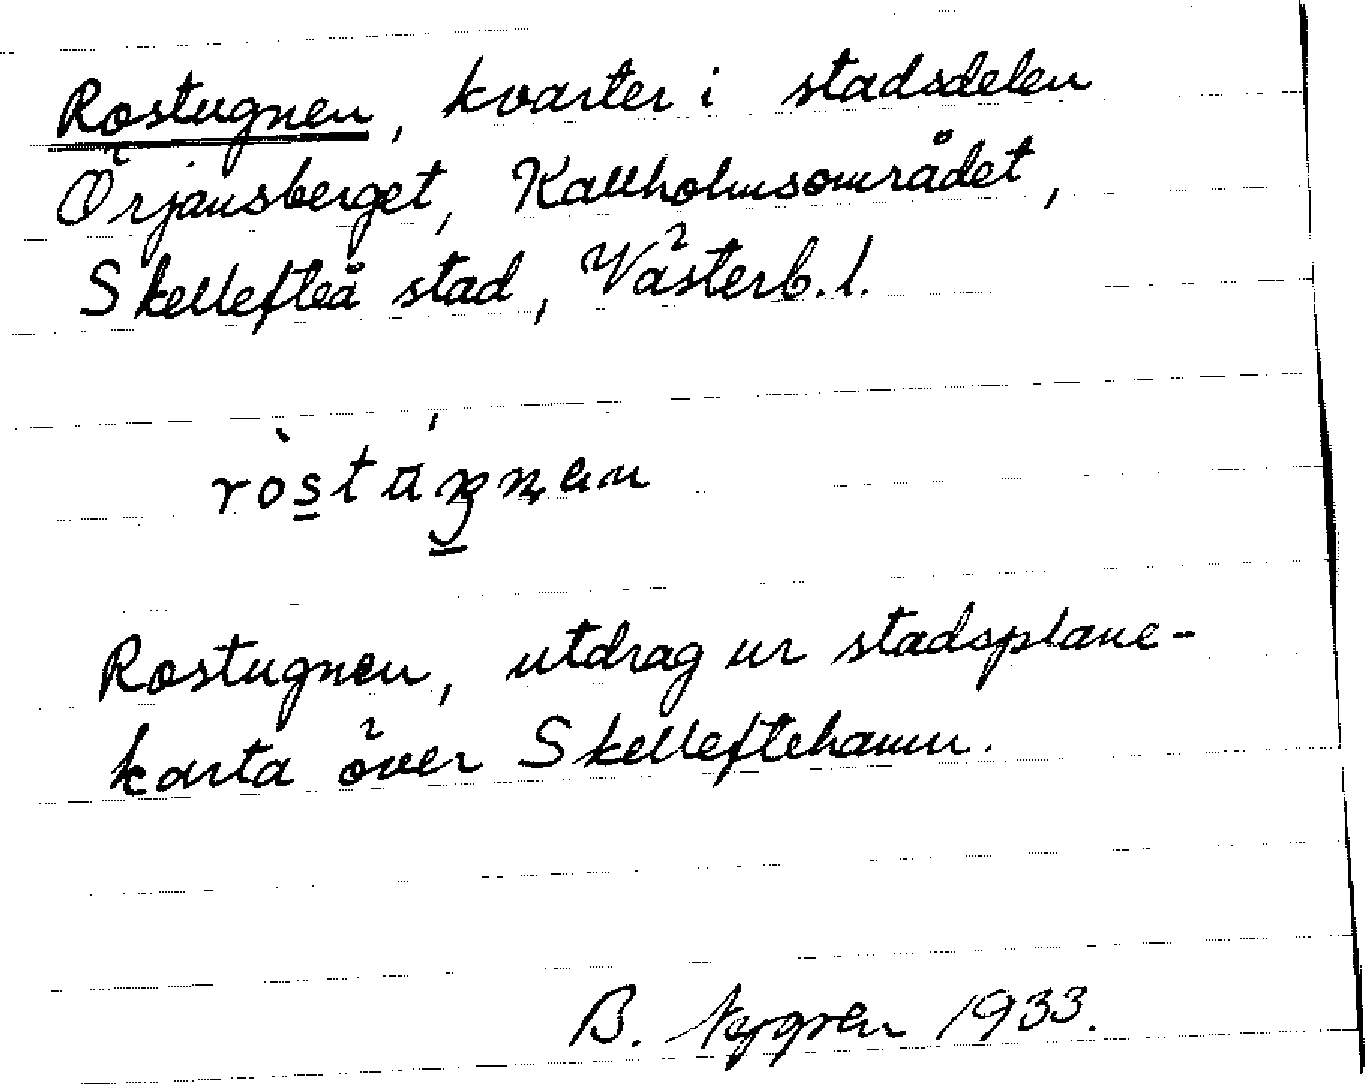 Rostugnen, kvarter i stadsdelen
Örjansberget, Kallholmsområdet,
Skellefteå stad, Västerb.l.
Rostugnen, utdrag ur stadsplane-
karta över Skelleftehamn.
B. Nygren 1933.